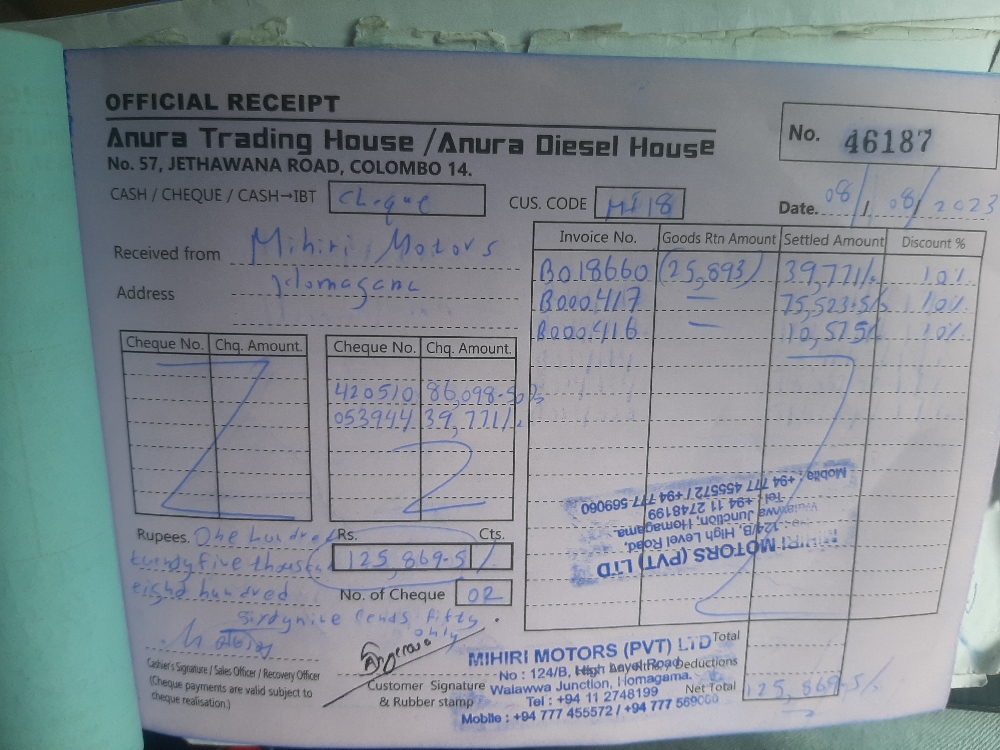 OFFICIAL RECEIPT
Anura Trading House /Anura Diesel House
No. 57, JETHAWANA ROAD, COLOMBO 14.
No. 46187
CASH / CHEQUE / CASH→IBT Cheque
CUS. CODE MI 18
Date. 08/08/2023
Received from Mihiri Motors
Address Homagama
Invoice No. Goods Rtn Amount Settled Amount Discount %
B018660 (25,893) 39,771/. 10%
B000417 — 75,523.5/. 10%
B000416 — 10,575/. 10%
Cheque No. Chq. Amount. Cheque No. Chq. Amount.
420510 86,098.50/.
053944 39,771/.
Rupees. One hundred
twenty five thousand
eight hundred
sixty nine cents fifty
only
Rs. Cts.
125,869.5/.
No. of Cheque 02
MIHIRI MOTORS (PVT) LTD
124/B, High Level Road,
Walawwa Junction, Homagama.
Tel : +94 11 2748199
Mobile : +94 777 455572 / +94 777 569060
Cashier's Signature / Sales Officer / Recovery Officer
(Cheque payments are valid subject to
cheque realisation.)
Customer Signature
& Rubber stamp
MIHIRI MOTORS (PVT) LTD
No : 124/B, High Level Road,
Walawwa Junction, Homagama.
Tel : +94 11 2748199
Mobile : +94 777 455572 / +94 777 569060
Total
Deductions
Net Total 125,869.5/.